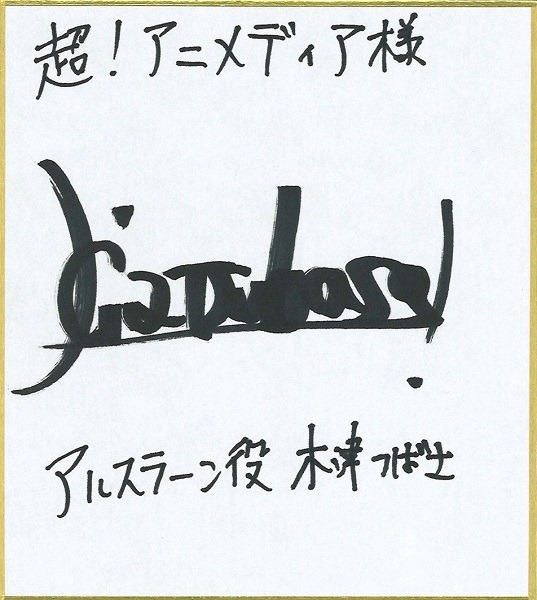 超!アニメディア様
アルスラーン役 木津つばさ